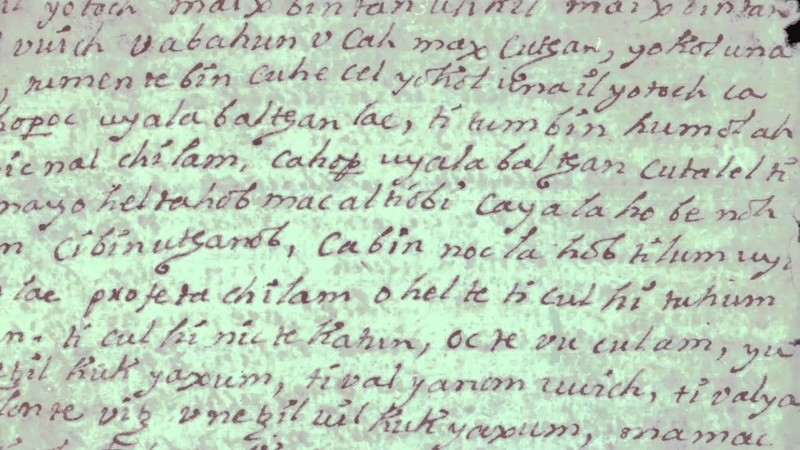 yotoch maix bin tan u hkil maix bin tan
uuich u abahun u cah max cutʒan, yokol una
, tumen te bin cuhe cel yokol unail yotoch ca
hopoc uyala baltʒan lae, ti tun bin humol ah
nal chilam, cahop uyala baltʒan cutalel ti
mayohel tahob macaltiobi cayalaho be noh
cibinutʒanob, cabin noc la hob tilum uy
lae profeta chilam ohel te ti cul hi tuhum
n. ti cul hi nic te katun, oc te vu culam, yu
kuk yaxum, ti val yanom uuich, ti valya
lonte viʒ vneʒil uil kuk yaxum, mamac